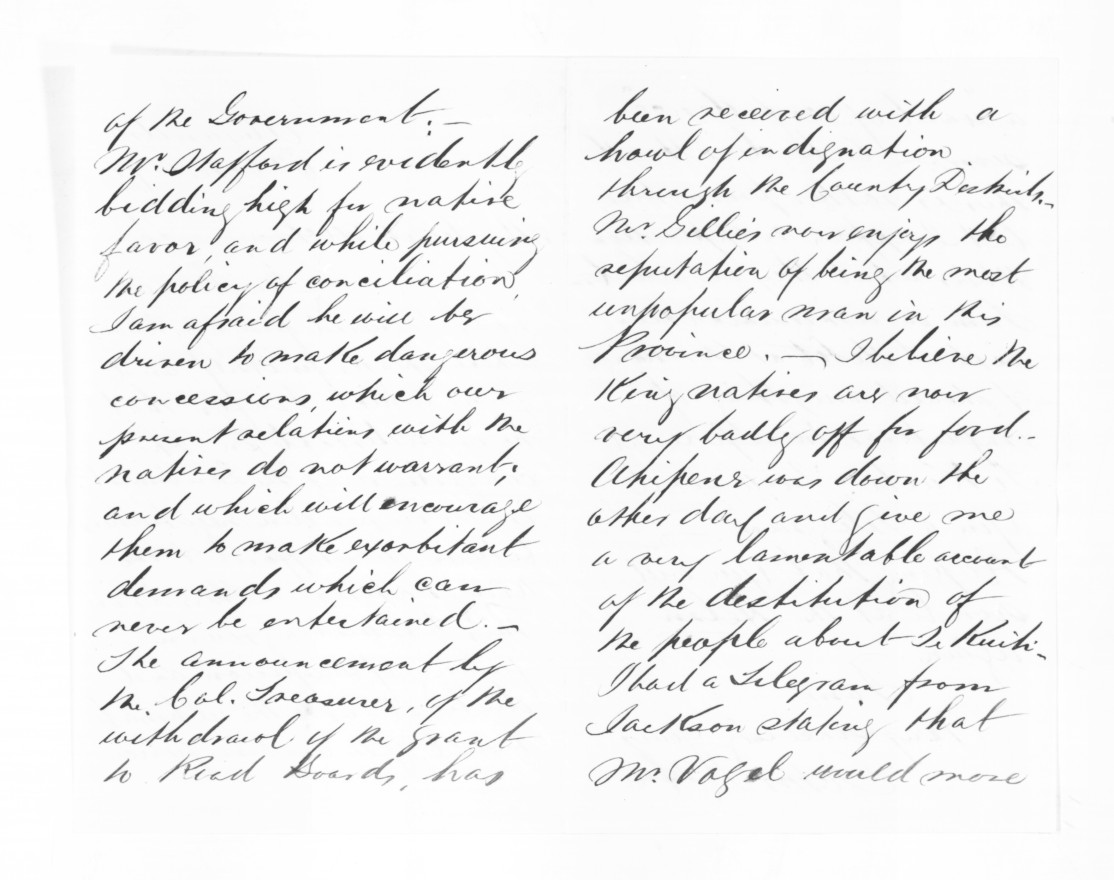 of the Government. —
Mr. Stafford is evidently
bidding high for native
favor, and while pursuing
the policy of conciliation,
I am afraid he will be
driven to make dangerous
concessions, which our
present relations with the
natives do not warrant,
and which will encourage
them to make exorbitant
demands which can
never be entertained. —
The announcement by
the Col. Treasurer, of the
withdrawal of the grant
to Road Boards, has
been received with a
howl of indignation
through the County Districts. -
Mr. Gillies now enjoys the
reputation of being the most
unpopular man in this
Province. — I believe the
King natives are now
very badly off for food. -
Ahipene was down the
other day and give me
a very lamentable account
of the destitution of
the people about Te Kuiti -
I had a Telegram from
Jackson stating that
Mr. Vogel would move